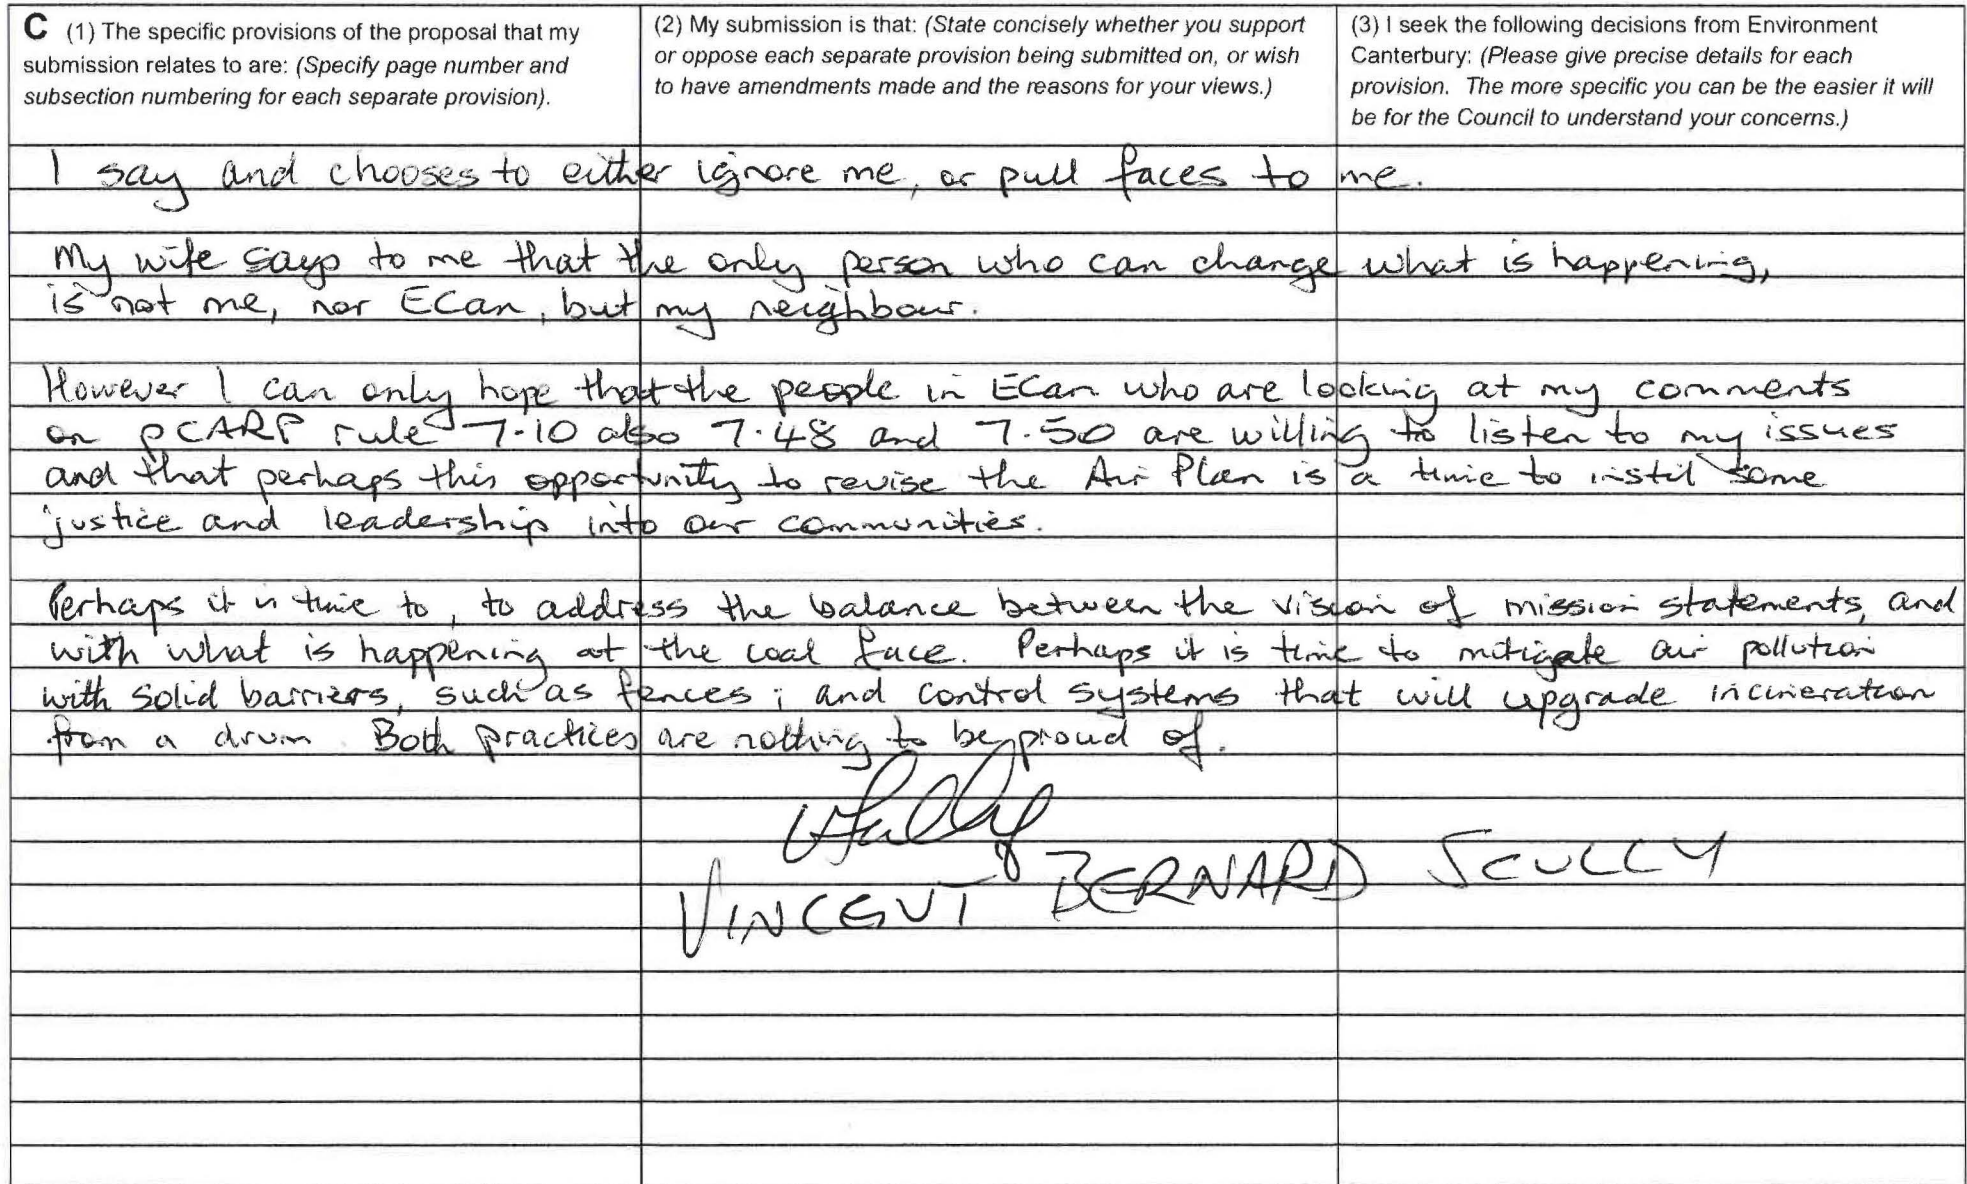 C (1) The specific provisions of the proposal that my
submission relates to are: (Specify page number and
subsection numbering for each separate provision).
(2) My submission is that: (State concisely whether you support
or oppose each separate provision being submitted on, or wish
to have amendments made and the reasons for your views.)
(3) I seek the following decisions from Environment
Canterbury: (Please give precise details for each
provision. The more specific you can be the easier it will
be for the Council to understand your concerns.)
I say and chooses to either ignore me, or pull faces to me.
My wife says to me that the only person who can change what is happening,
is not me, nor ECan, but my neighbour.
However I can only hope that the people in ECan who are looking at my comments
on pCARP rule 7.10 also 7.48 and 7.50 are willing to listen to my issues
and that perhaps this opportunity to revise the Air Plan is a time to instil some
justice and leadership into our communities.
Perhaps it is time to, to address the balance between the vision of mission statements, and
with what is happening at the coal face. Perhaps it is time to mitigate air pollution
with solid barriers, such as fences; and control systems that will upgrade incineration
from a drum. Both practices are nothing to be proud of.
VINCENT BERNARD SCULLY